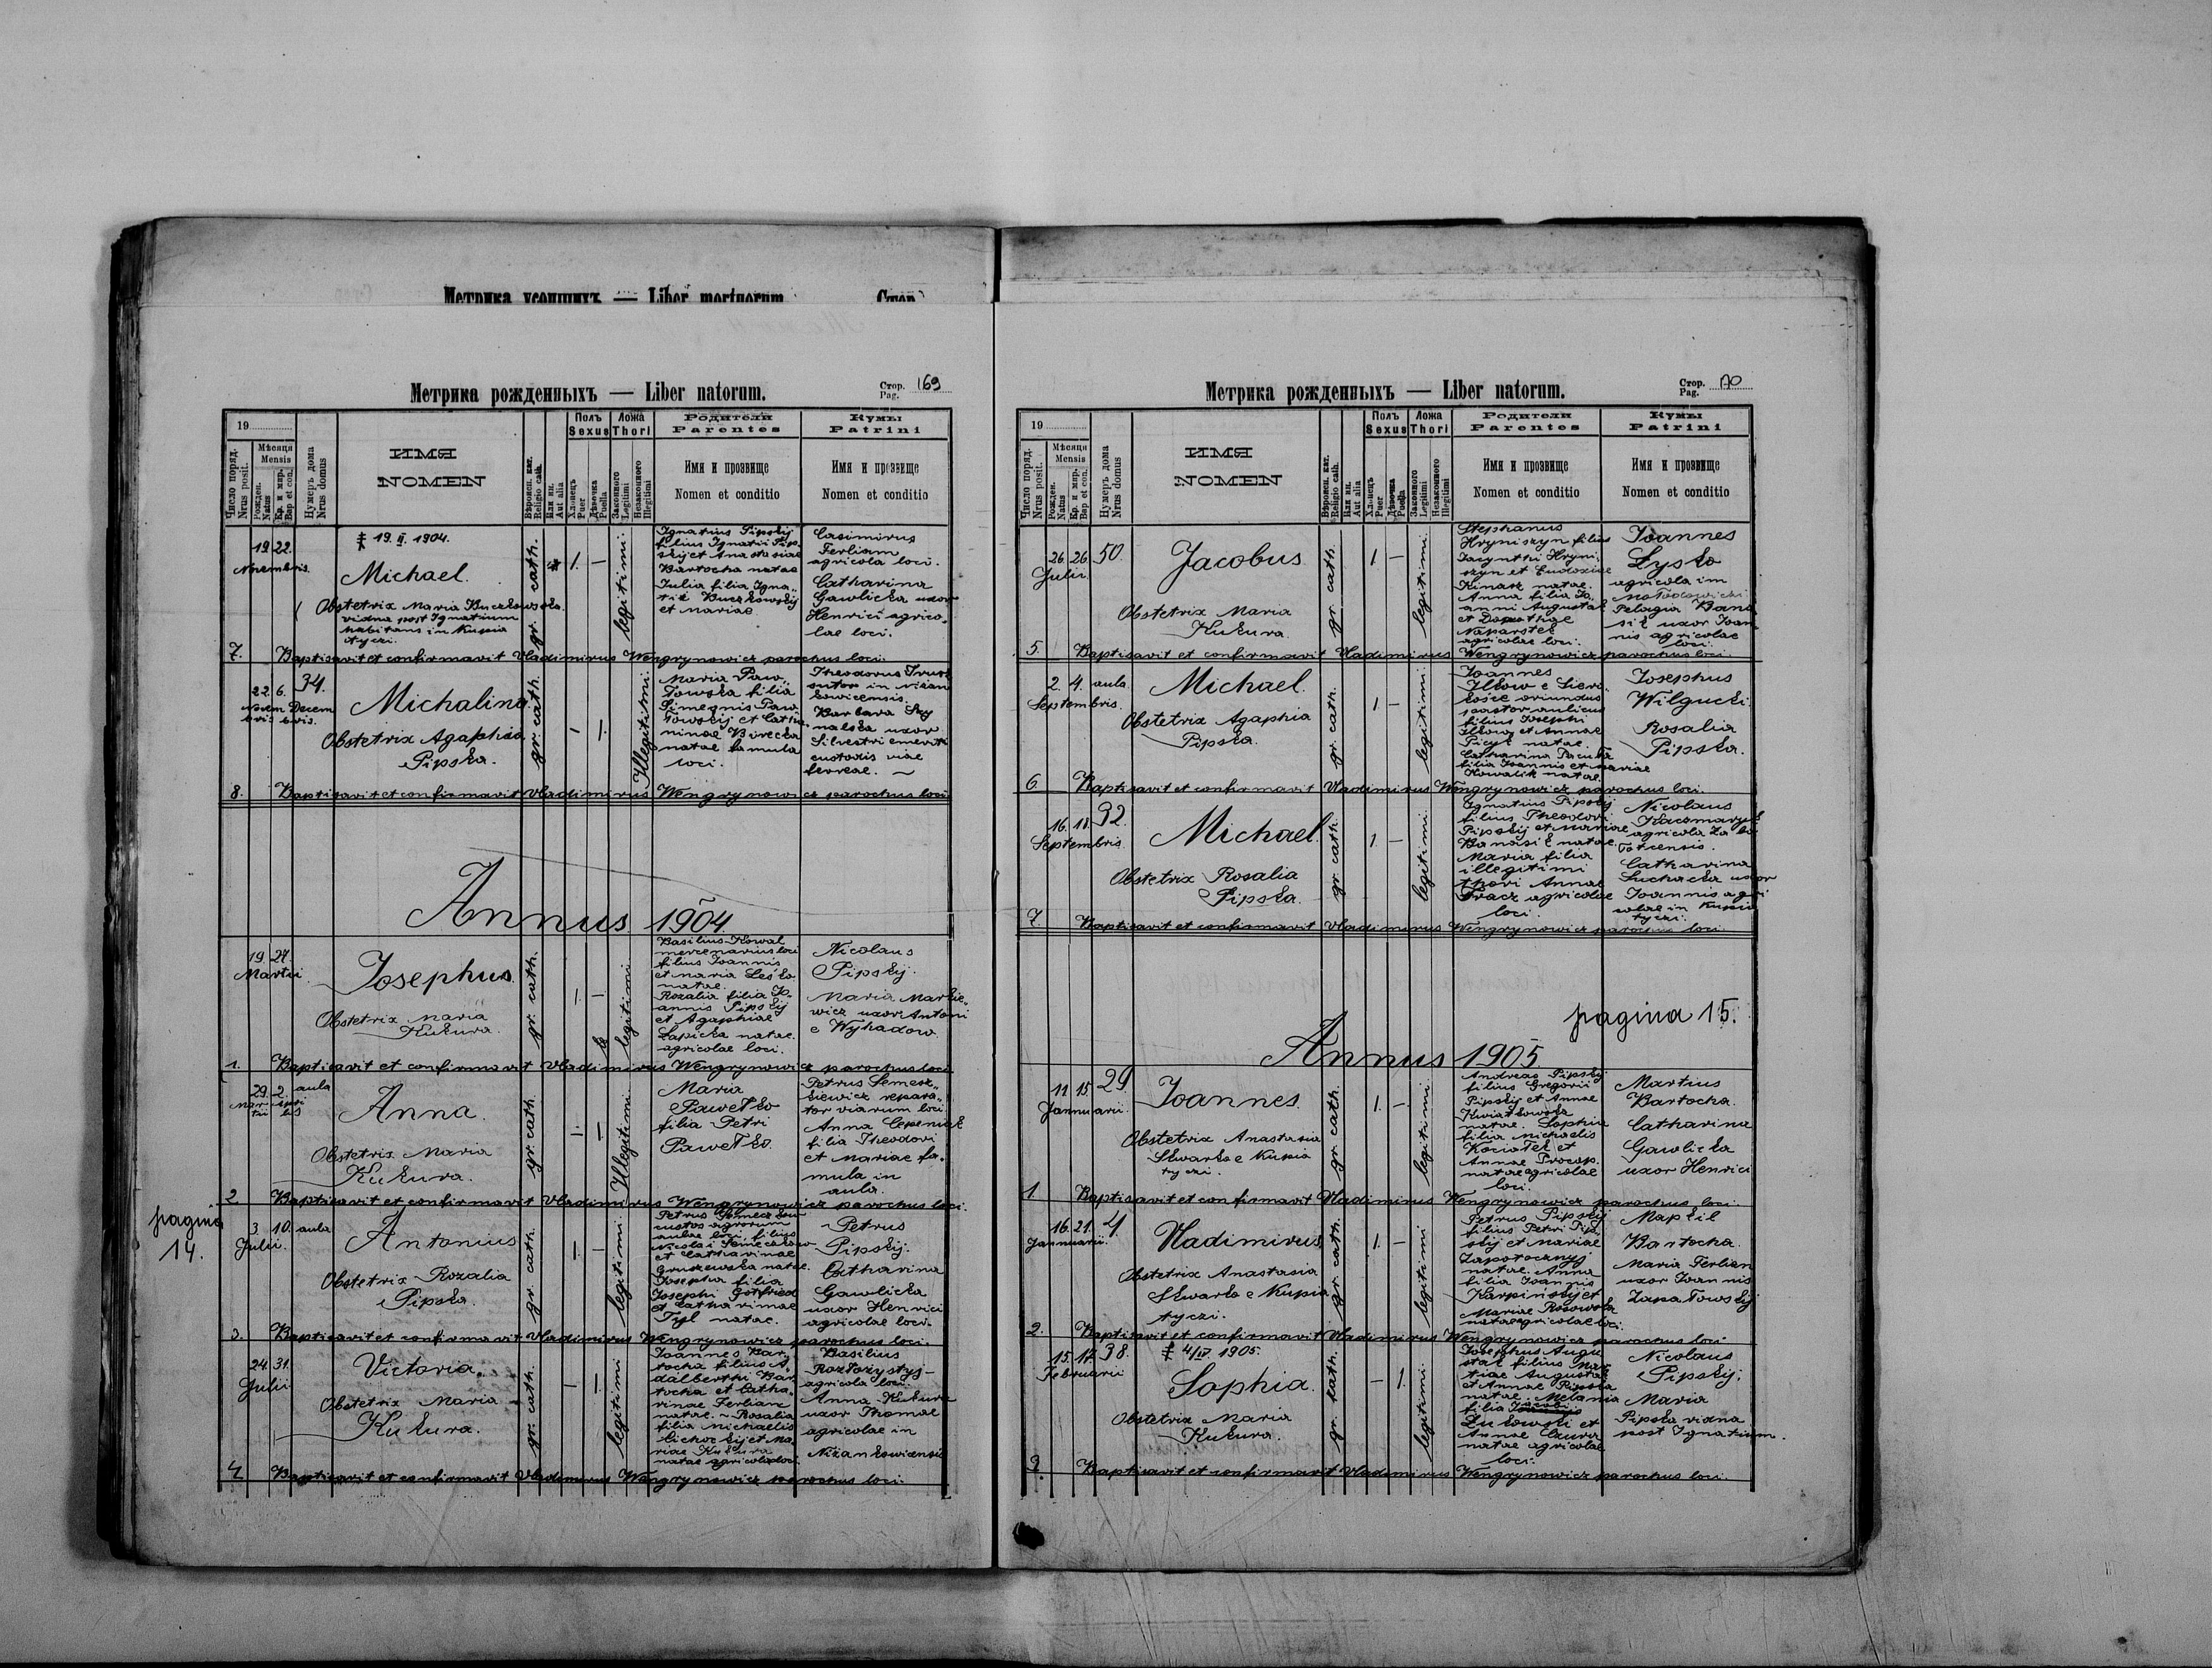 Метрика усопшихъ — Liber mortuorum. Стор.
Метрика рожденныхъ — Liber natorum.
Стор. Pag. 169
19
Число поряд. Nrus posit.
Мѣсяця Mensis
Рожден. Natus
Кр. и мир. Bap et con.
Нумеръ дома Nrus domus
ИМЯ
NOMEN
Вѣроисп. кат. Religio cath.
Или ин. Aut alia
Полъ
Sexus
Хлопецъ Puer
Дѣвочка Puella
Ложа
Thori
Законного Legitimi
Незаконного Illegitimi
Родители
Parentes
Имя и прозвище
Nomen et conditio
Кумы
Patrini
Имя и прозвище
Nomen et conditio
19. 22.
Novembris.
19. II. 1904.
Michael.
Obstetrix Maria Buczkowska
vidua post Ignatium
habitans in Kupia
tyczi.
gr. cath.
1. —
legitimi.
Ignatius Pipskij
filius Ignatii Pip
skij et Anastasiae
Bartocha natae
Julia filia Igna
tii Buczkowskij
et Mariae
Casimirus
Ferliam
agricola loci.
Catharina
Gawlicka uxor
Henrici agrico
lae loci.
7. Baptisavit et confirmavit Vladimirus Wengrynowicz parochus loci.
22. 6. 34.
Novem Decem
bris bris.
Michalina
Obstetrix Agaphia
Pipska.
gr. cath.
— 1.
Illegitimi.
Maria Paw
łowska filia
Simeonis Paw
łowskij et Catha
rinae Birecka
natae famula
loci.
Theodorus
sutor in Niżan
kowicensis.
Barbara
uxor
Silvestri emeriti
custodis viae
ferreae.
8. Baptisavit et confirmavit Vladimirus Wengrynowicz parochus loci
Annus 1904.
19. 27.
Martii.
Josephus.
Obstetrix Maria
Kukura.
gr. cath.
1. —
legitimi
Basilius Kowal
mercenarius loci
filius Joannis
et Maria Leśko
natae.
Rozalia filia Jo
annis Pipskij
et Agaphiae
Łapicka natae.
agricolae loci.
Nicolaus
Pipskij.
Maria Markie
wicz uxor Antoni
e Wyhadow
1. Baptisavit et confirmavit Vladimirus Wengrynowicz parochus loci
29. 2. aula
Mar Apri
tii lis
Anna.
Obstetrix Maria
Kukura.
gr. cath.
— 1
Illegitimi.
Maria
Pawełko
filia Petri
Pawełko.
Petrus Semesz
kiewicz repara
tor viarum loci.
Anna Cepeniak
filia Theodori
et Mariae fa
mula in
aula.
2. Baptisavit et confirmavit Vladimirus Wengrynowicz parochus loci.
pagina
14.
3. 10. aula
Julii.
Antonius
Obstetrix Rozalia
Pipska.
gr. cath.
1. —
legitimi.
Petrus
custos agrorum
aulae loci filius
Nicolai
et Catharinae
Gruszewska natae.
Josepha filia
Josephi Gotfried
et Catharinae
Tyl natae.
Petrus
Pipskij.
Catharina
Gawlicka
uxor Henrici
agricolae loci.
3. Baptisavit et confirmavit Vladimirus Wengrynowicz parochus loci.
24. 31.
Julii
Victoria.
Obstetrix Maria
Kukura.
gr. cath.
— 1.
legitimi
Joannes Bar
tocha filius A
dalberthi Bar
tocha et Catha
rinae Ferlianc
natae. Rosalia
filia Michaelis
Cichockij et Ma
riae Kukura
natae agricolae loci
Basilius
Rozłożystyj
agricola loci.
Anna Kukura
uxor Thomae
agricolae in
Niżankowicensis
4. Baptisavit et confirmavit Vladimirus Wengrynowicz parochus loci.
Метрика рожденныхъ — Liber natorum.
Стор. Pag. 170
19
Число поряд. Nrus posit.
Мѣсяця Mensis
Рожден. Natus
Кр. и мир. Bap et con.
Нумеръ дома Nrus domus
ИМЯ
NOMEN
Вѣроисп. кат. Religio cath.
Или ин. Aut alia
Полъ
Sexus
Хлопецъ Puer
Дѣвочка Puella
Ложа
Thori
Законного Legitimi
Незаконного Illegitimi
Родители
Parentes
Имя и прозвище
Nomen et conditio
Кумы
Patrini
Имя и прозвище
Nomen et conditio
26. 26. 50.
Julii.
Jacobus
Obstetrix Maria
Kukura.
gr. cath.
1 —
legitimi.
Stephanus
Hryniszyn filius
Jacynthi Hryni
szyn et Eudoxiae
Kinasz natae.
Anna filia Jo
anni Augustak
et Dorothae
Naparstek
agricolae loci.
Joannes
Lysko
agricola in
Pelagia Bana
sik uxor Joan
nis agricolae
loci.
5. Baptisavit et confirmavit Vladimirus Wengrynowicz parochus loci
2. 4. aula
Septembris.
Michael.
Obstetrix Agaphia
Pipska.
gr. cath.
1 —
legitimi.
Joannes
Ilkow e Siera
kośce oriundus
pastor aulicus
filius Josephi
Ilkow et Annae
Picyk natae.
Catharina Pacuła
filia Joannis et Mariae
Kowalik natae.
Josephus
Wilgucki
Rosalia
Pipska.
6. Baptisavit et confirmavit Vladimirus Wengrynowicz parochus loci.
16. 18. 32.
Septembris
Michael.
Obstetrix Rosalia
Pipska.
gr. cath.
1 —
legitimi.
Ignatius Pipskij
filius Theodori
Pipskij et Mariae
Banasik natae.
Maria filia
illegitimi
thori Annae
Tracz agricolae
loci.
Nicolaus
Kaczmaryk
agricola
Catharina
Suchacka uxor
Joannis agri
colae in Kupia
tyczi.
7. Baptisavit et confirmavit Vladimirus Wengrynowicz parochus loci.
pagina 15.
Annus 1905.
11 15. 29
Jannuarii.
Joannes.
Obstetrix Anastasia
Skwarko e Kupia
tyczi.
gr. cath.
1. —
legitimi
Andreas Pipskij
filius Gregorii
Pipskij et Annae
Kwiatkowska
natae. Sophia
filia Michaelis
et
Annae Procop
natae agricolae
loci.
Martius
Bartocha.
Catharina
Gawlicka
uxor Henrici
1. Baptisavit et confirmavit Vladimirus Wengrynowicz parochus loci.
16. 21. 4
Jannuarii.
Vladimirus
Obstetrix Anastasia
Skwarko e Kupia
tyczi.
gr. cath.
1. —
legitimi
Petrus Pipskij
filius Petri Pip
skij et Mariae
Zapotocznyj
natae. Anna
filia Joannis
Karpińskij et
Mariae Rosowska
natae agricolae loci.
Bartocha.
Maria Ferlian
uxor Joannis
Zapałowskij
2. Baptisavit et confirmavit Vladimirus Wengrynowicz parochus loci
15. 17. 38.
Februarii
4/IV 1905.
Sophia.
Obstetrix Maria
Kukura.
gr. cath.
— 1.
legitimi.
Josephus Augu
stak filius Mat
tiae Augustak
et Annae Pipska
natae. Melania
filia
Łukowski et
Annae Czura
natae agricolae
loci.
Nicolaus
Pipskij.
Maria
Pipska vidua
post Ignatium.
3. Baptisavit et confirmavit Vladimirus Wengrynowicz parochus loci.